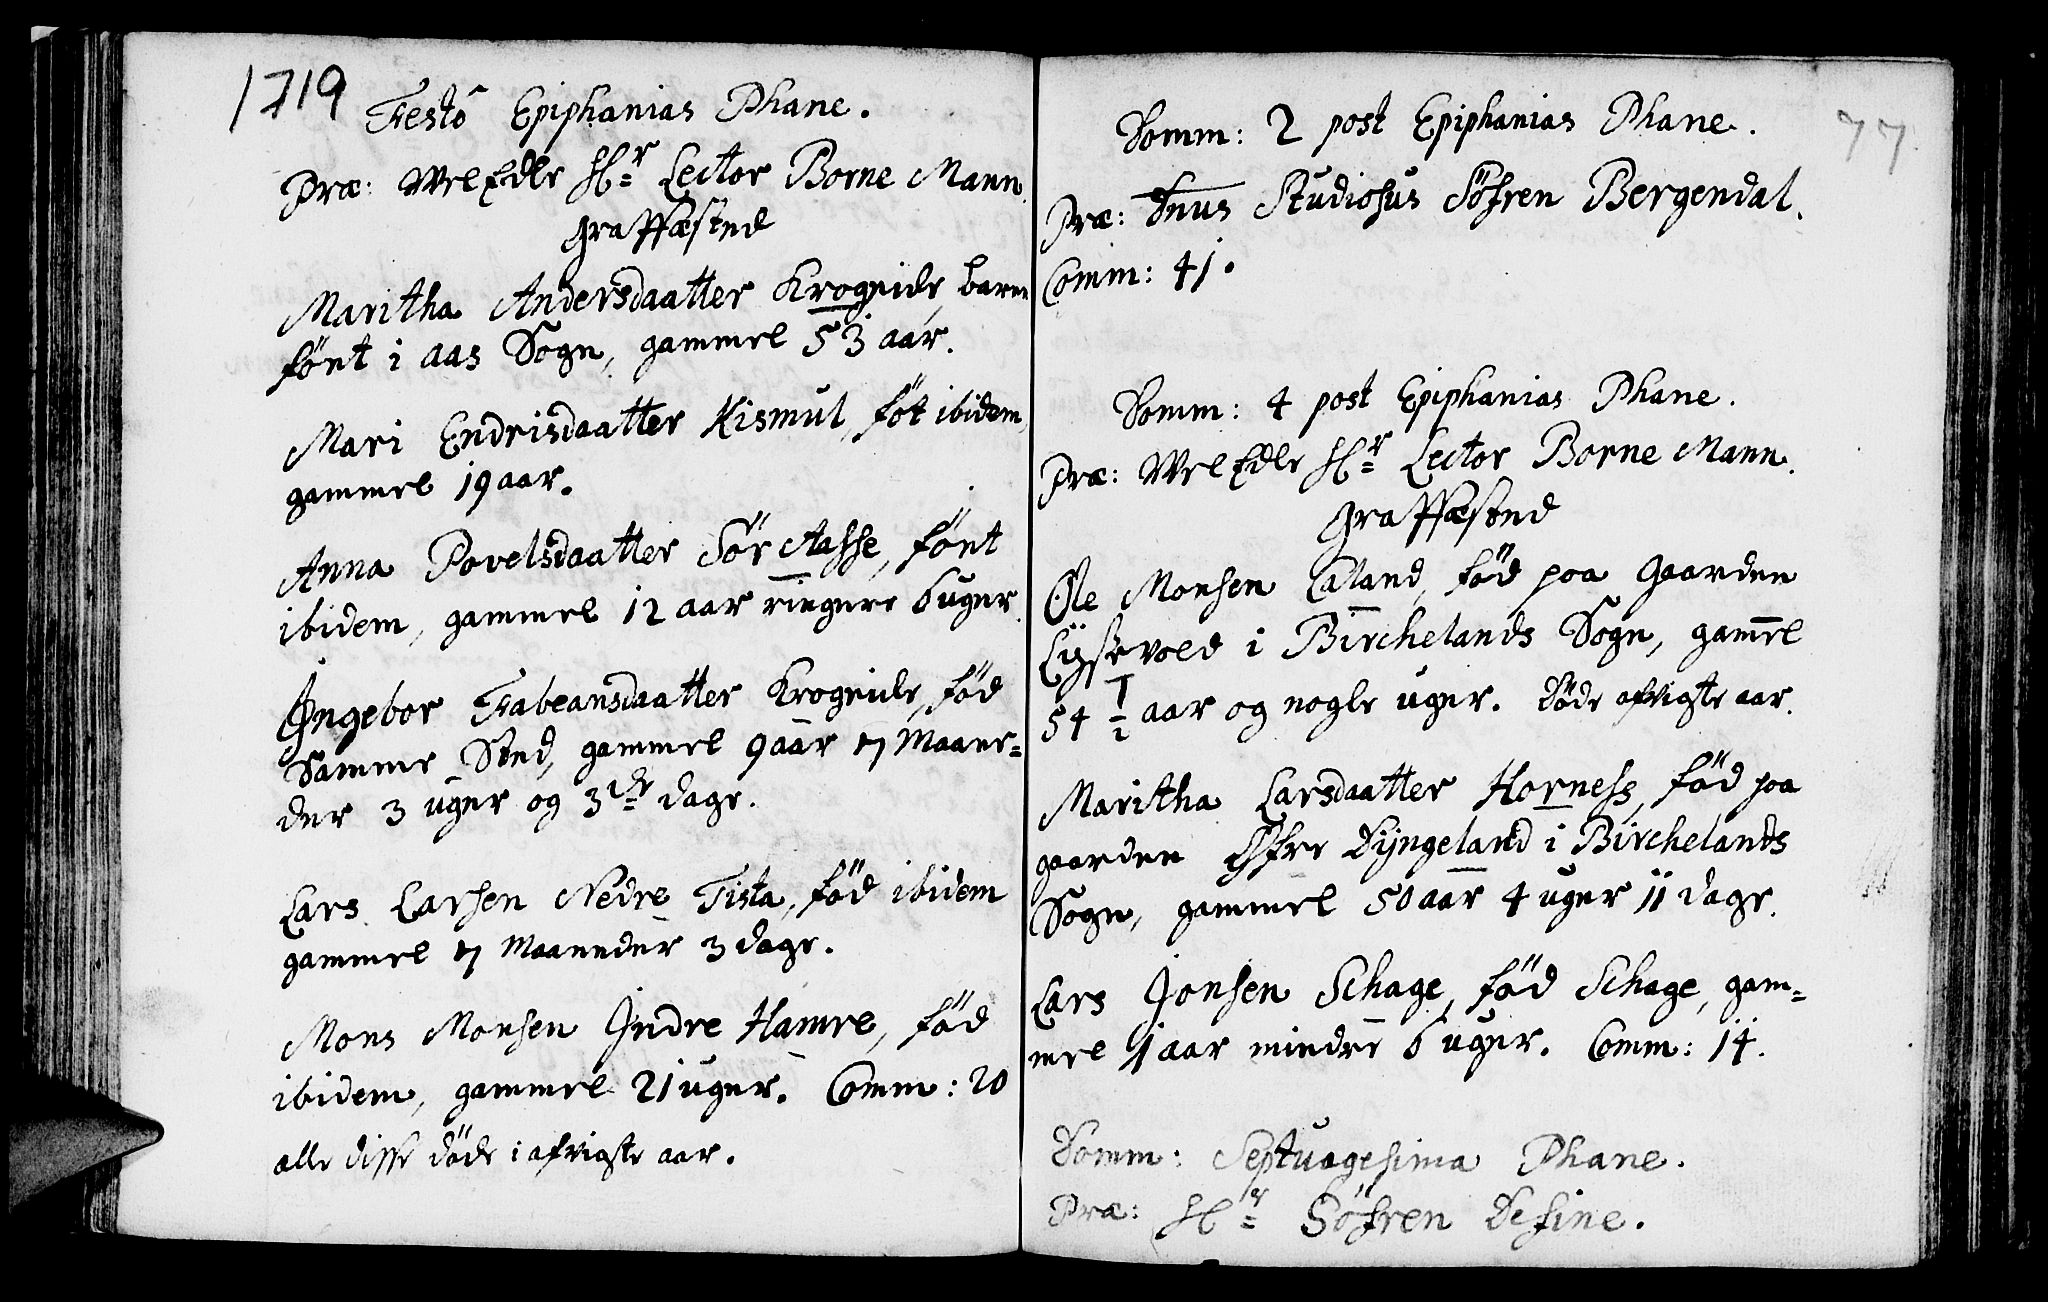 1719
Festô Epiphanias Phane.
Præ: WelEdle Hr Lector Borne Mann.
Graffæsted
Maritha Andersdaatter Krogeide, barne
født i Aas Sogn, gammel 53 aar.
Mari Endrisdaatter Kismul, føt ibidem,
gammel 19 aar.
Anna Povelsdaatter Sör Aasse, födt
ibidem, gammel 12 aar ringere 6 uger.
Ingebor Fabeansdaatter Krogeide, föd
Samme Sted, gammel 9 aar 7 Maane=
der 3 uger og 3de dage.
Lars Larsen Nedre Tista, föd ibidem
gammel 7 Maaneder 3 dage.
Mons Monsen Indre Hamre, föd
ibidem, gammel 21 uger. Comm: 20
alle disse döde i afvigte aar.
77
Domm: 2 post Epiphanias Phane.
Præ: Dnus Studiosus Söfren Bergendal.
Comm: 41.
Domm: 4 post Epiphanias Phane.
Præ: WelEdle Hr Lector Borne Mann.
Graffæsted
Ole Monsen Lãland, föd paa Gaarden
Lysevold i Birchelands Sogn, gam̄el
54 1/2 aar og nogle uger. Döde afvigte aar.
Maritha Larsdaatter Horness, föd paa
gaarden Öfre Dyngeland i Birchelands
Sogn, gammel 50 aar 4 uger 11 dage.
Lars Jonsen Schage, föd Schage, gam=
mel 1 aar mindre 6 uger. Comm: 14.
Domm: Septuagesima Phane.
Præ: Hr Söfren Define.